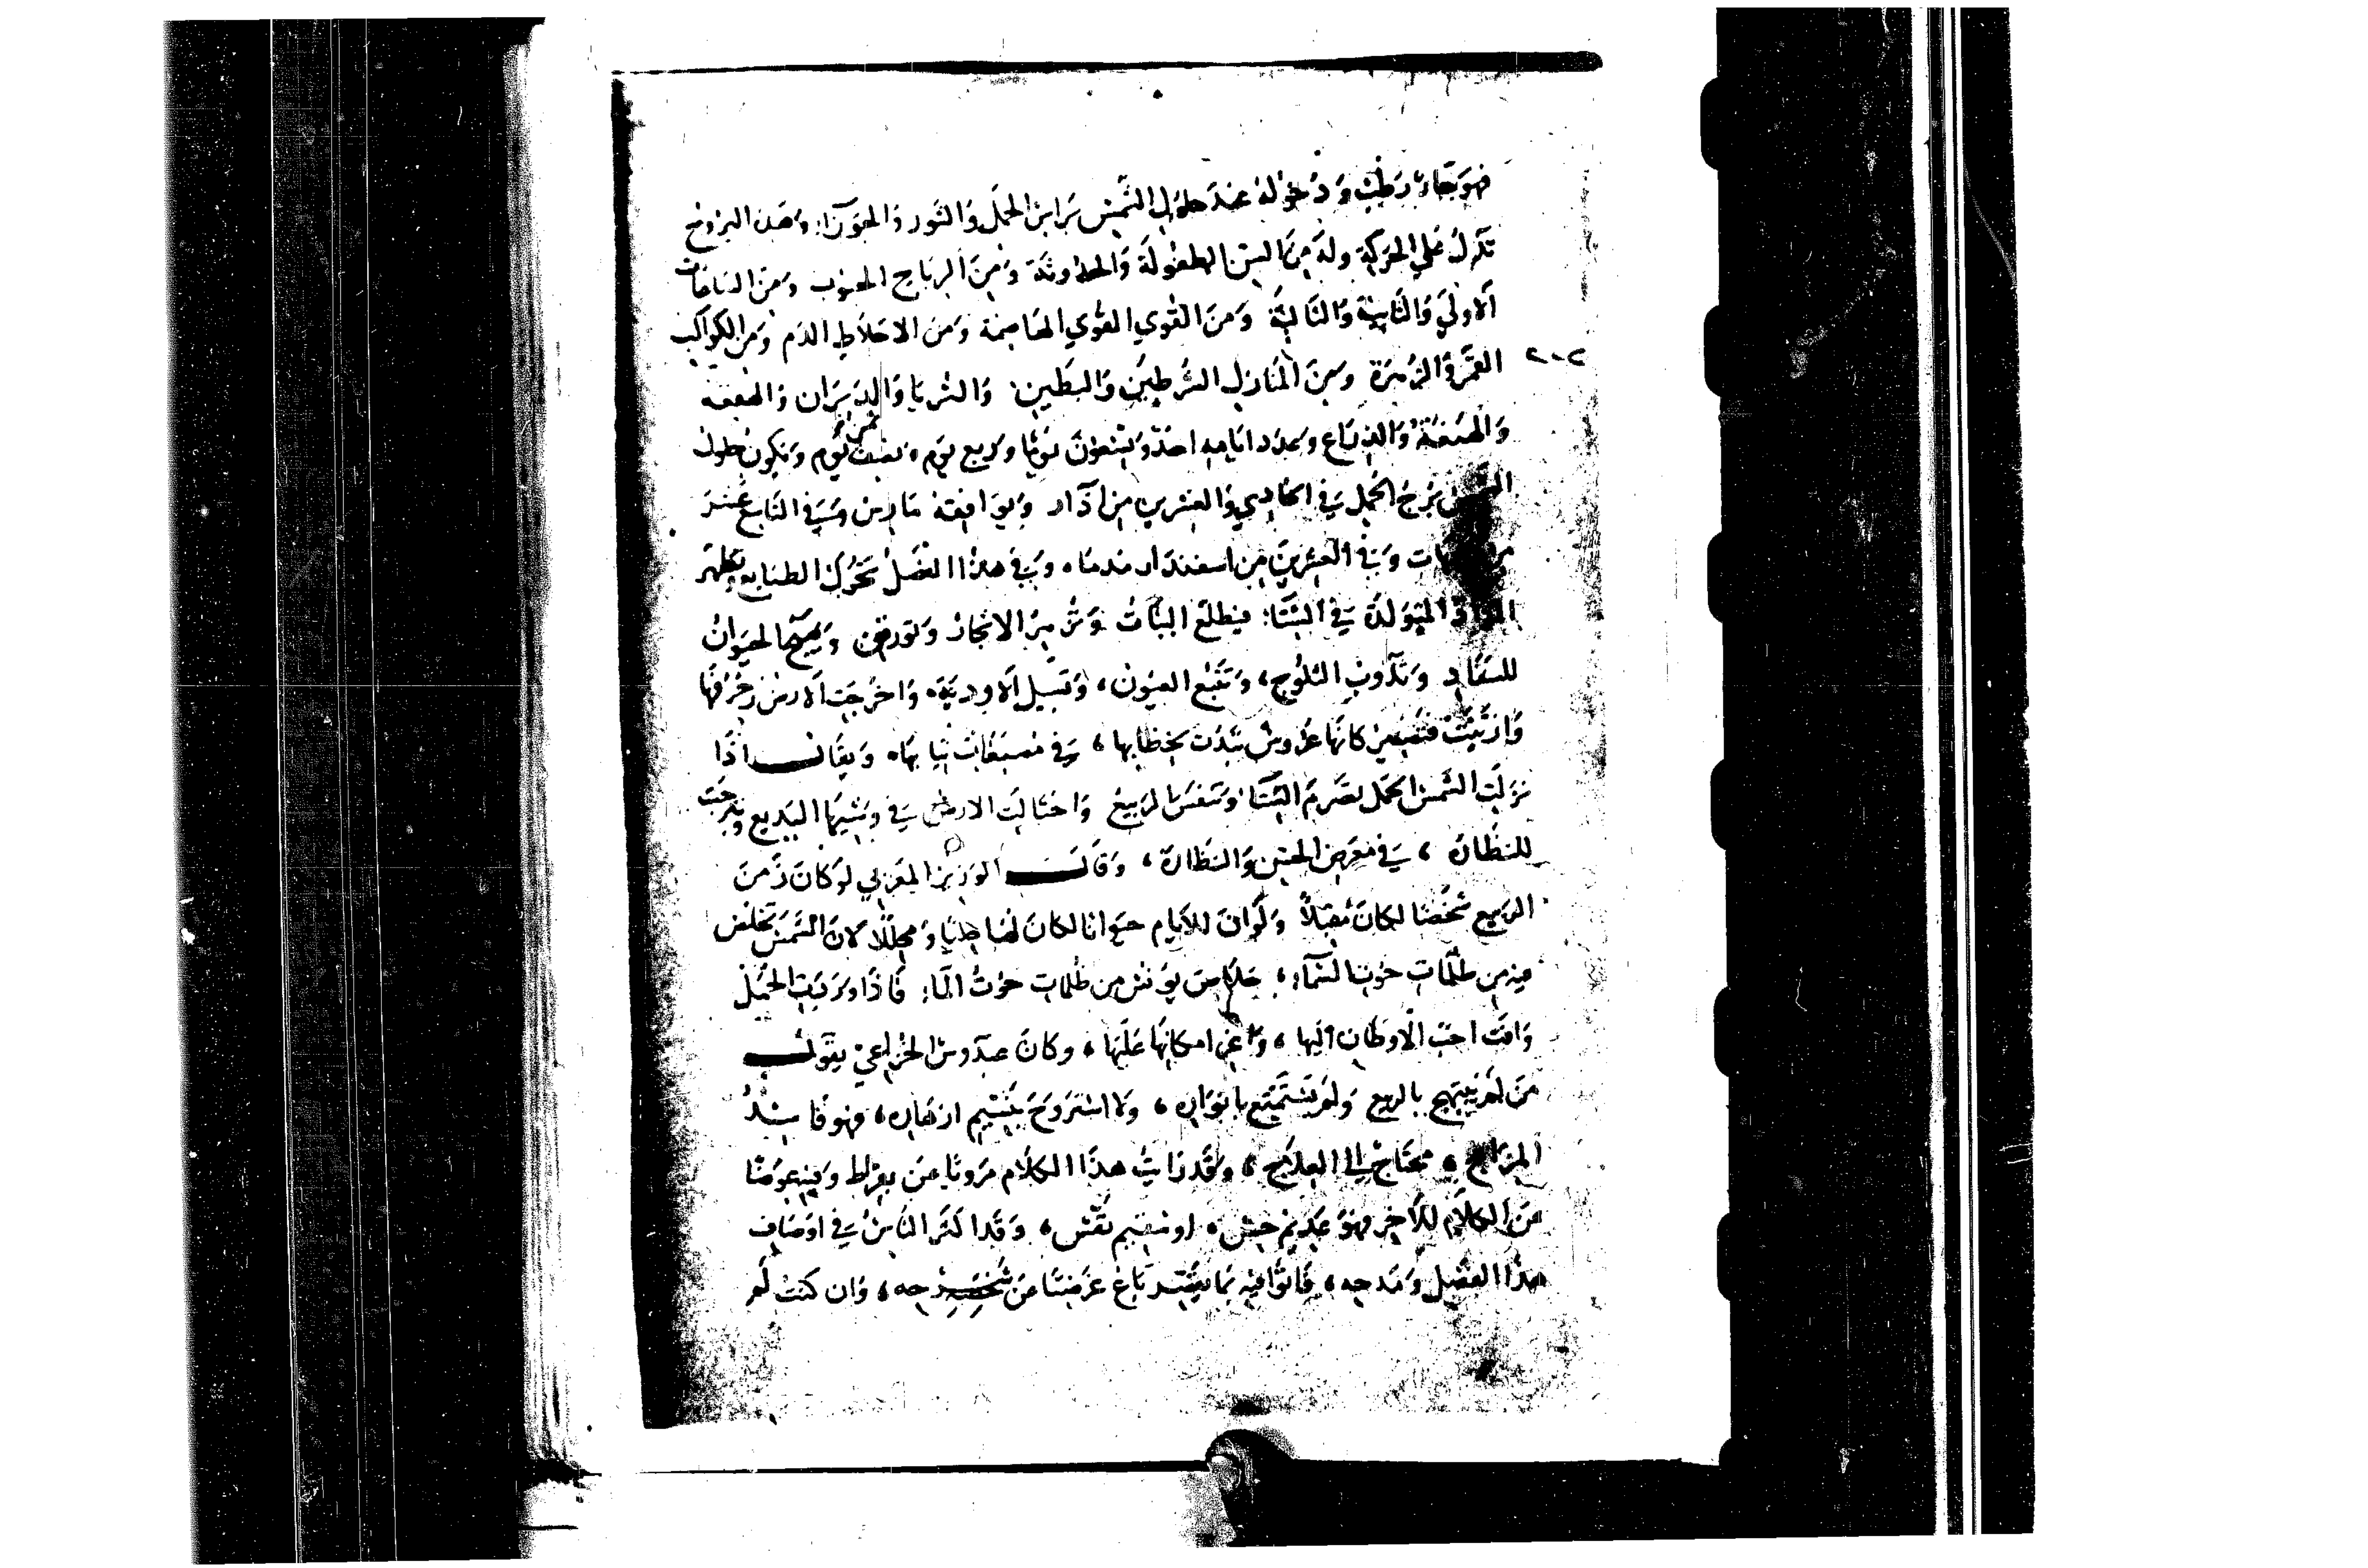 فهو حار رطب ودخوله عند حلول الشمس براس الحمل والثور والجوزآء وهذه البروج
تدل على الحركة وله من السن الطفولة والحداثة ومن الرياح الجنوب ومن الساعات
الاولى والثانية والثالثة ومن القوى القوى الهاضمة ومن الاخلاط الدم ومن الكواكب
القمر والزهرة ومن المنازل الشرطين والبطين والثريا والدبران والهقعة
٢٠٢
والهنعة والذراع وعدد ايامه احد وتسعون يوما وربع يوم ونصف ثمن يوم ويكون حلول
الشمس برج الحمل في الحادي والعشرين من اذآر ويوافقه مارس وفي التاسع عشر
من برمهات وفي العشرين من اسفندارمذماه وفي هذا الفصل تتحرك الطبايع وتظهر
المواد المتولدة في الشتآء فيطلع النبات وتزهر الاشجار وتورق ويهيج الحيوان
للسفاد وتذوب الثلوج، وتنبع العيون، وتسيل الاودية، واخرجت الارض زخرفها
وازينت فتصير كانها عروس تبدت لخطابها، في مصبغات ثيابها، ويقال اذا
نزلت الشمس الحمل تصرم الشتآء وتنفس الربيع واختالت الارض في وشيها البديع وتبرجت
للنظارة، في معرض الحسن والنضارة، وقال الوزير المغربي لو كان زمن
الربيع شخصا لكان مقبلا ولو ان للايام حيوانا لكان لها حليا ومجللا لان الشمس تخلص
فيه من ظلمات حوت السمآء، خلاص يونس من ظلمات حوت المآء فاذا وردت الحمل
وافت احب الاوطان اليها، واعز امكانها عليها، وكان عبدوس الخزاعي يقول
من لم يبتهج بالربيع ولم يستمتع بانواره، ولا استروح بنسيم ازهاره، فهو فاسد
المزاج، محتاج الى العلاج، ولقد رايت هذا الكلام مرويا عن بقراط وفيه عوضا
عن الكلام الاخر فهو عديم حس، او سقيم نفس، وقد اكثر الناس في اوصاف
هذا الفصل ومدحه، فاتوا فيه بما يقصر باع عن شرحه، وان كنت لم